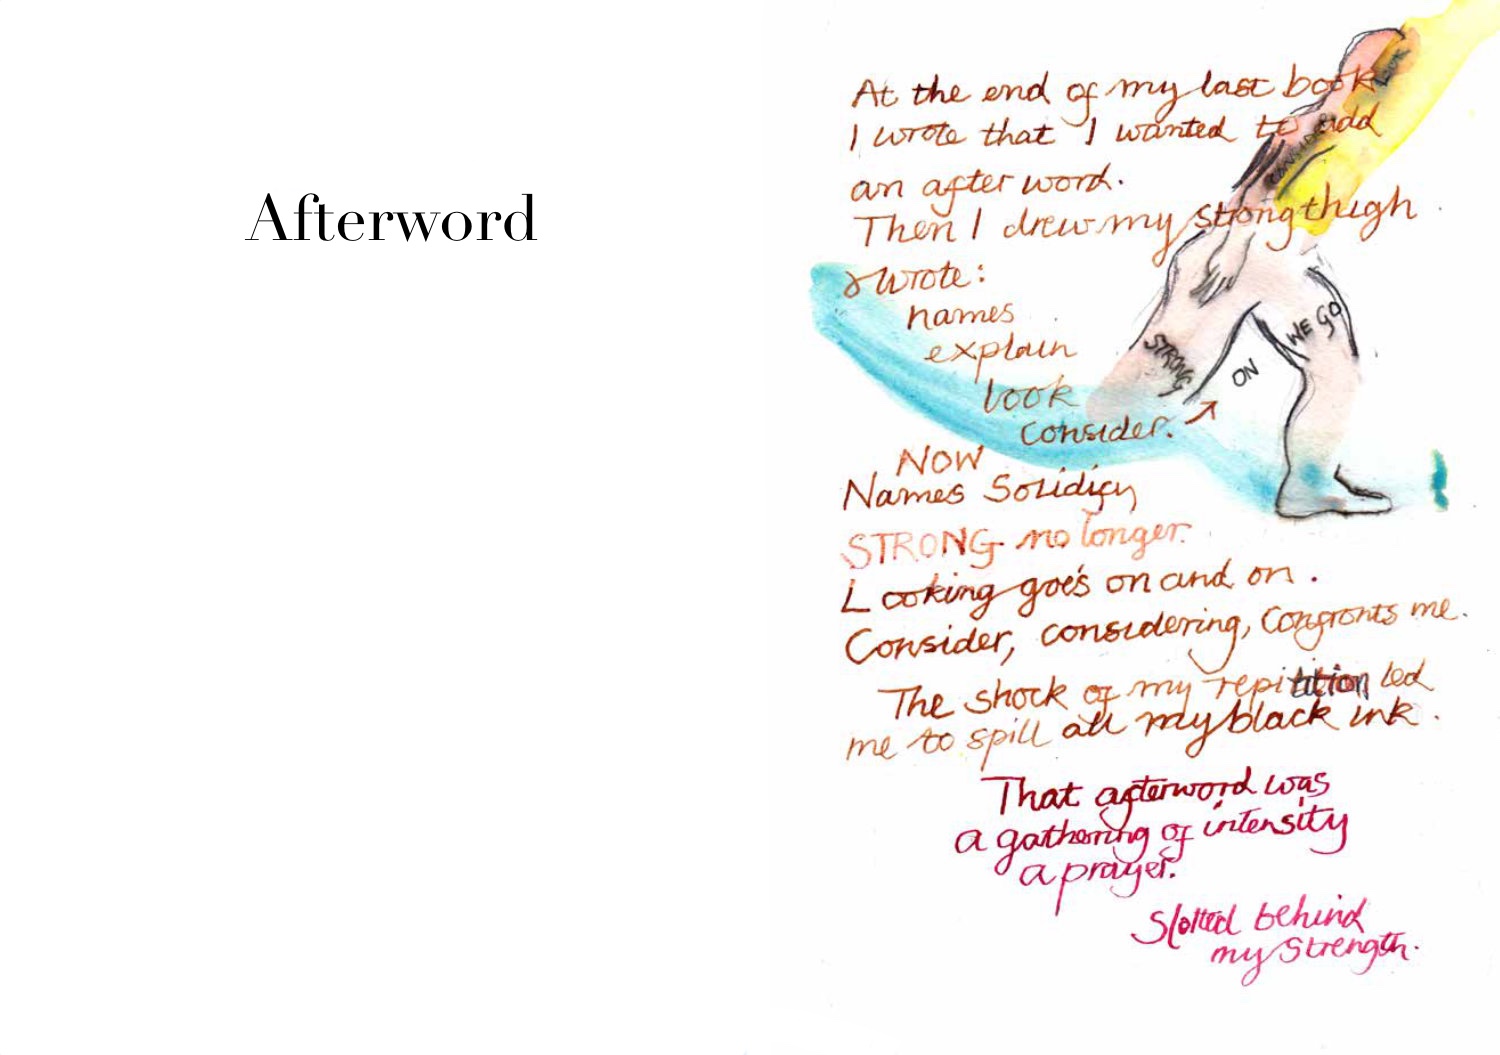 Afterword
At the end of my last book
I wrote that I wanted to add
an after word.
Then I drew my strong thigh
& wrote:
names
explain
look
consider.
NOW
Names Solidify
STRONG no longer.
Looking goes on and on.
Consider, considering, confronts me.
The shock of my repitition led
me to spill all my black ink.
That afterword was
a gathering of intensity
a prayer.
Slotted behind
my strength.
LOOK
CONSIDER
STRONG
ON
WE GO